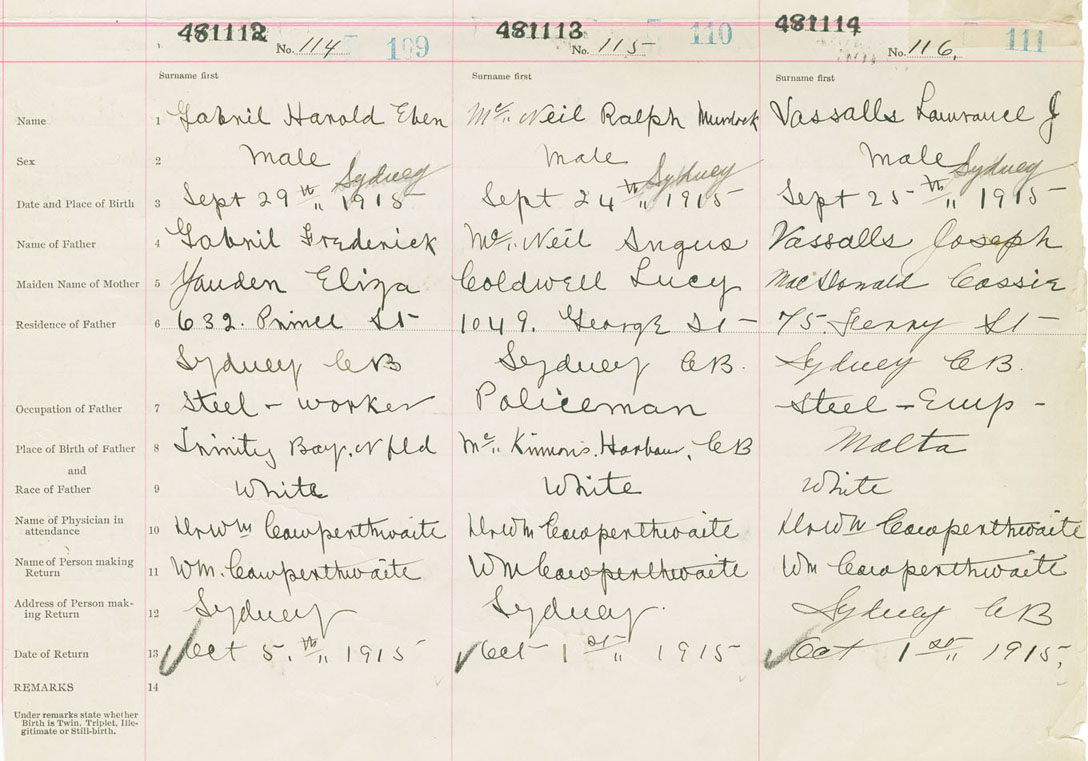 481112 481113 481114
No. 114 109 No. 115 110 No. 116. 111
Surname first Surname first Surname first
Name 1 Gabriel Harold Eben Mc Neil Ralph Murdock Vassalls Lawrance J
Sex 2 Male Male Male
Sydney Sydney Sydney
Date and Place of Birth 3 Sept 29th „ 1915 Sept 24th „ 1915 Sept 25th „ 1915
Name of Father 4 Gabriel Frederick Mc Neil Angus Vassalls Joseph
Maiden Name of Mother 5 Yauden Eliza Coldwell Lucy MacDonald Cassie
Residence of Father 6 632. Prince St 1049. George St 75. Ferry St
Sydney CB Sydney CB. Sydney CB.
Occupation of Father 7 Steel - worker Policeman Steel - Emp -
Place of Birth of Father 8 Trinity Bay, Nfld Mc Kinnons. Harbour, CB Malta
and
Race of Father 9 White White White
Name of Physician in
attendance 10 Dr Wm Cowperthwaite Dr Wm Cowperthwaite Dr Wm Cowperthwaite
Name of Person making
Return 11 Wm. Cowperthwaite Wm Cowperthwaite Wm Cowperthwaite
Address of Person mak-
ing Return 12 Sydney Sydney. Sydney CB
Date of Return 13 Oct 5.th „ 1915 Oct 1st „ 1915 Oct 1st „ 1915,
REMARKS 14
Under remarks state whether
Birth is Twin, Triplet, Ille-
gitimate or Still-birth.